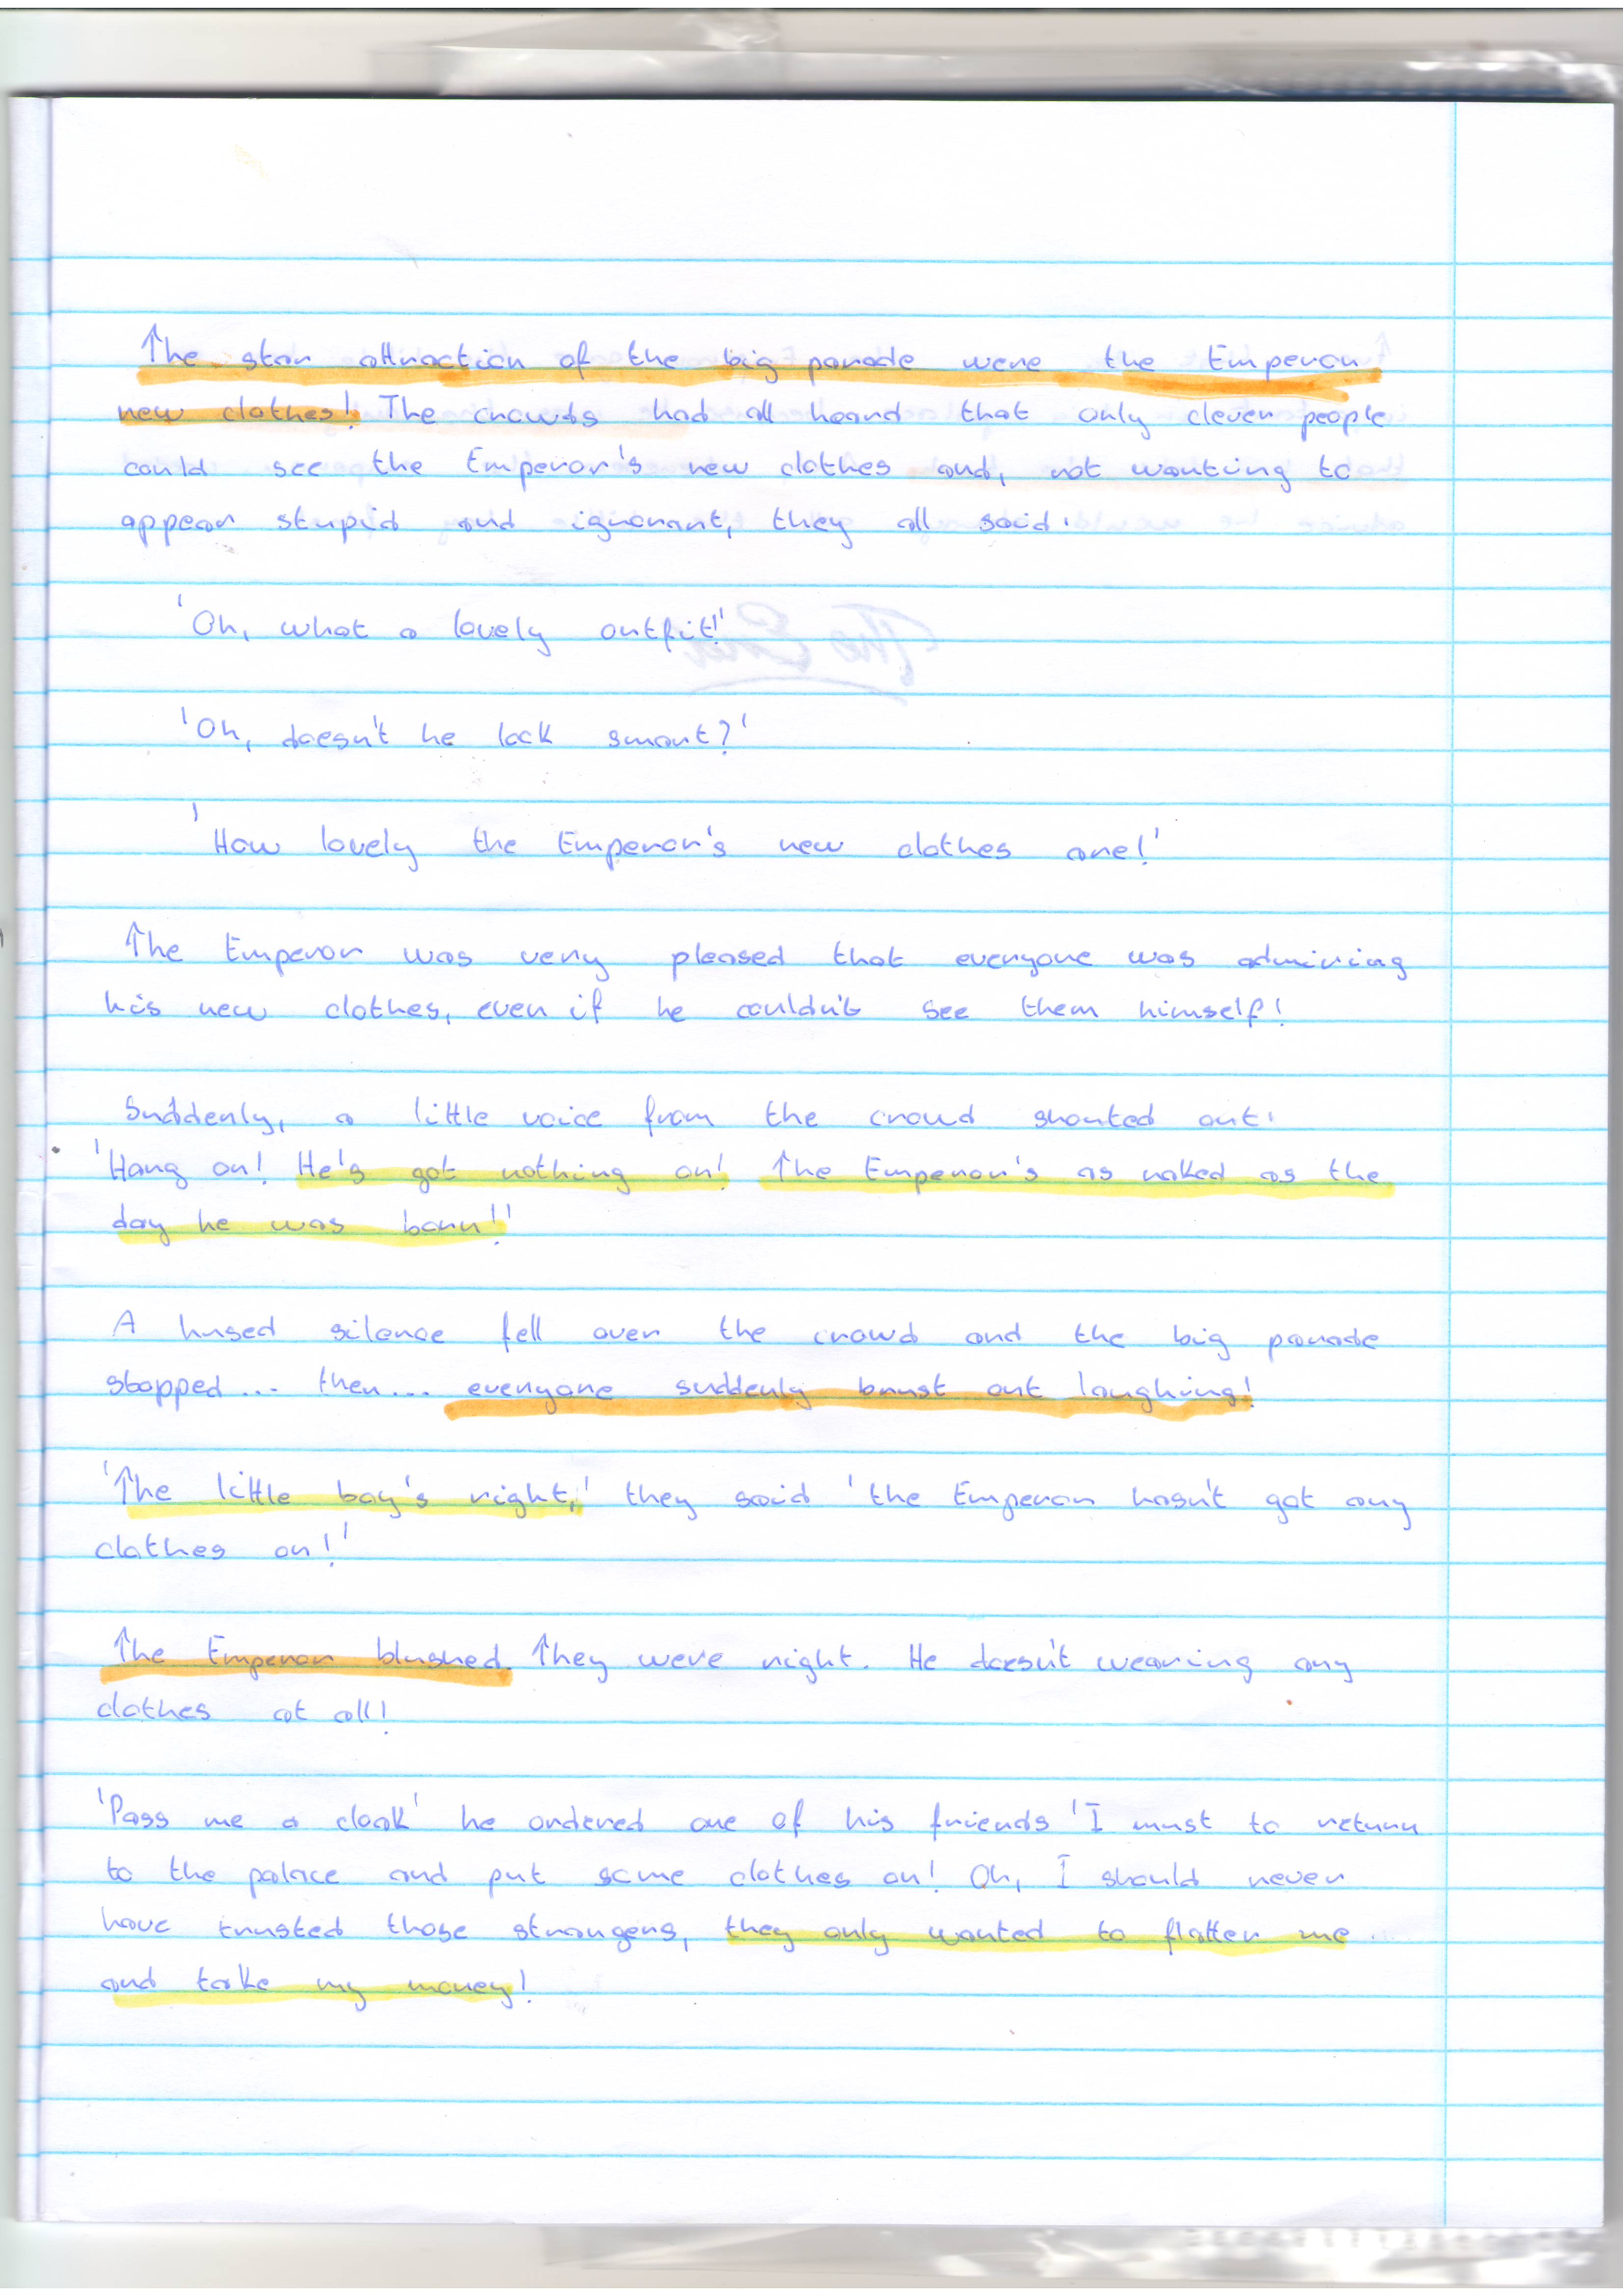 The star attraction of the big parade were the Emperor
new clothes! The crowds had all heard that only clever people
could see the Emperor's new clothes and, not wanting to
appear stupid and ignorant, they all said:
'Oh, what a lovely outfit!'
'Oh, doesn't he look smart?'
'How lovely the Emperor's new clothes are!'
The Emperor was very pleased that everyone was admiring
his new clothes, even if he couldn't see them himself!
Suddenly, a little voice from the crowd shouted out:
'Hang on! He's got nothing on! The Emperor's as naked as the
day he was born!'
A hused silence fell over the crowd and the big parade
stopped... then... everyone suddenly brust out laughing!
'The little boy's right,' they said 'the Emperor hasn't got any
clothes on!'
The Emperor blushed. They were right. He doesn't wearing any
clothes at all!
'Pass me a cloak' he ordered one of his friends 'I must to return
to the palace and put some clothes on! Oh, I should never
have trusted those strangers, they only wanted to flatter me
and take my money!
The End